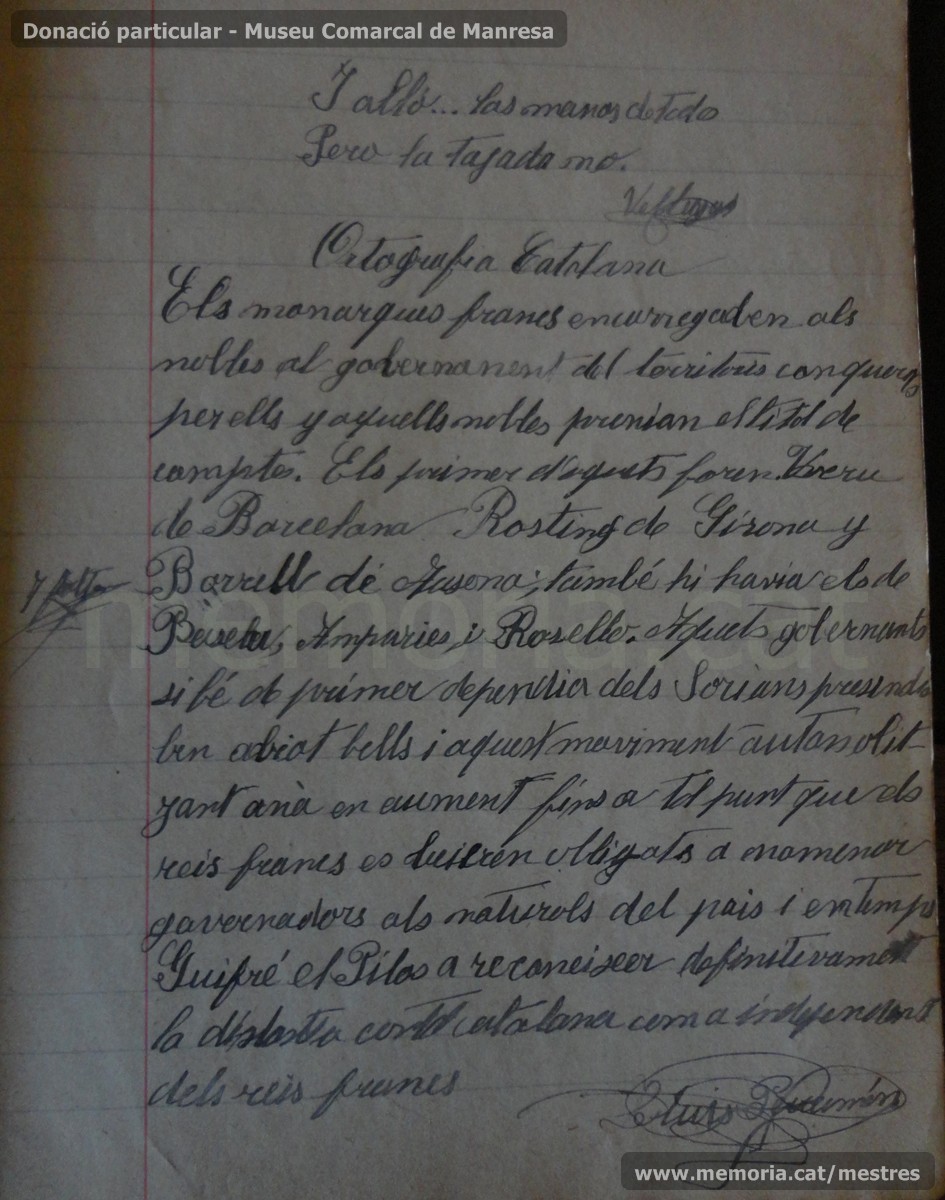 Donació particular - Museu Comarcal de Manresa
I alló... las manos de todo
Pero la tajada no.
Ortografia Catalana
Els monarques francs encarregaben als
nobles al gobernanent del territoris conquerits
per ells y aquells nobles prenian el titol de
compte. Els primer d'aquets foren
de Barcelana Rosting de Girona y
Borrell de Ausona; també hi havia els de
Amparies, i Rosello. Aquets gobernants
si bé de primer dependia dels
ben abiat i aquest moviment
zant anà en aument fins a tal punt que els
reis francs es obligats a nomenar
gavernadors als naturals del pais i en temps
Guifré el Pilos a reconeixer definitivament
la catalana com a independent
dels reis francs
Lluis
memoria.cat
www.memoria.cat/mestres